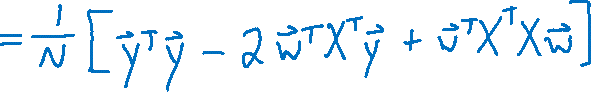 = 1/N [ y⃗ᵀy⃗ − 2 w⃗ᵀXᵀy⃗ + v⃗ᵀXᵀXw⃗ ]